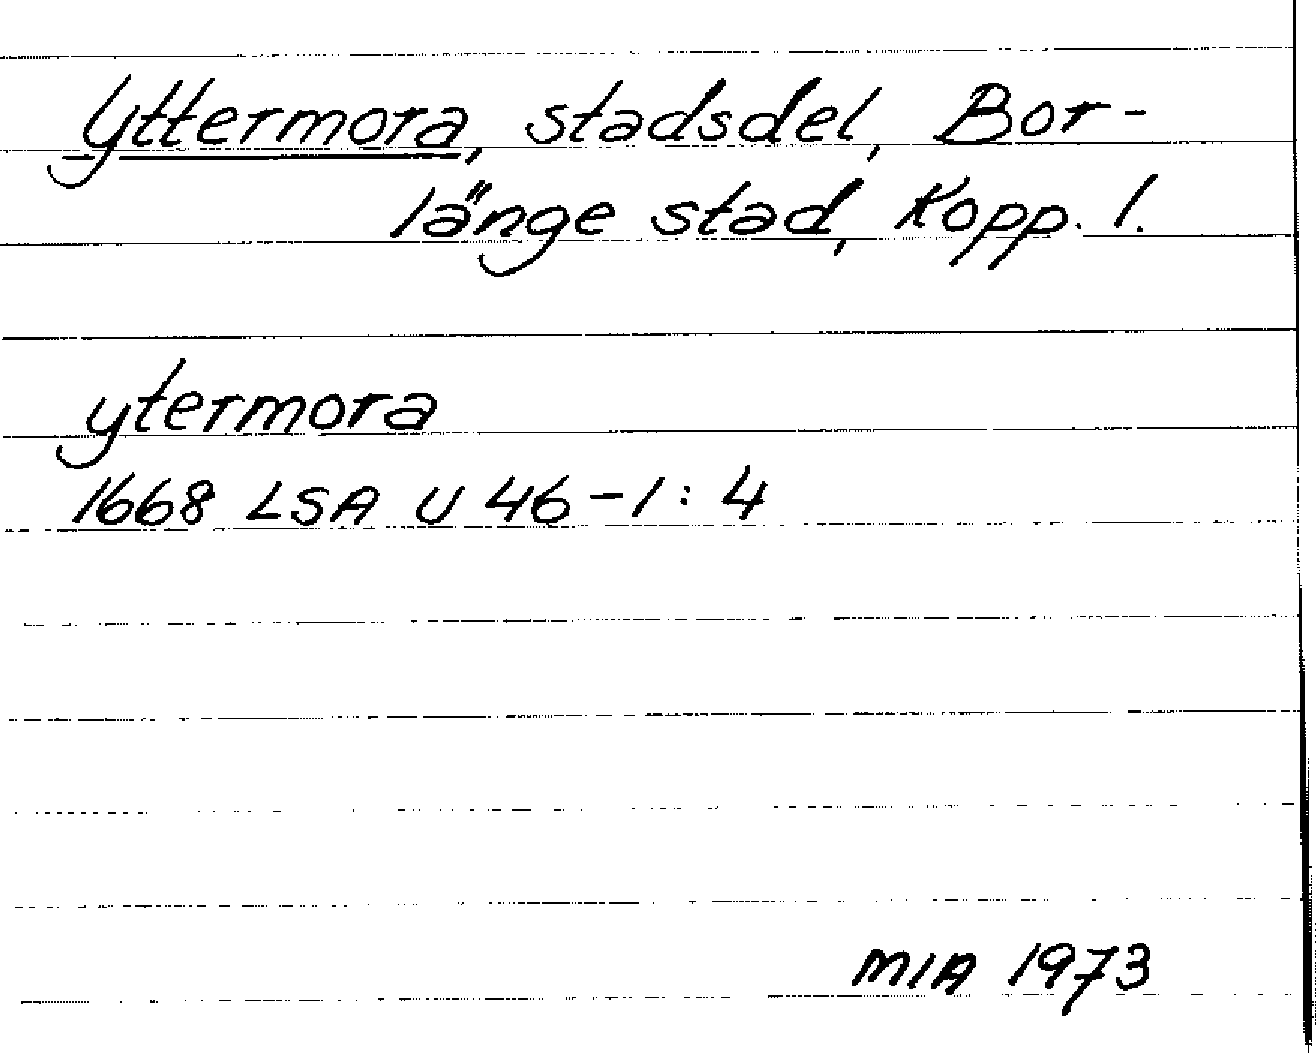 Yttermora, stadsdel, Bor-
länge stad, Kopp. l.
ytermora
1668 LSA U 46-1:4
MIA 1973